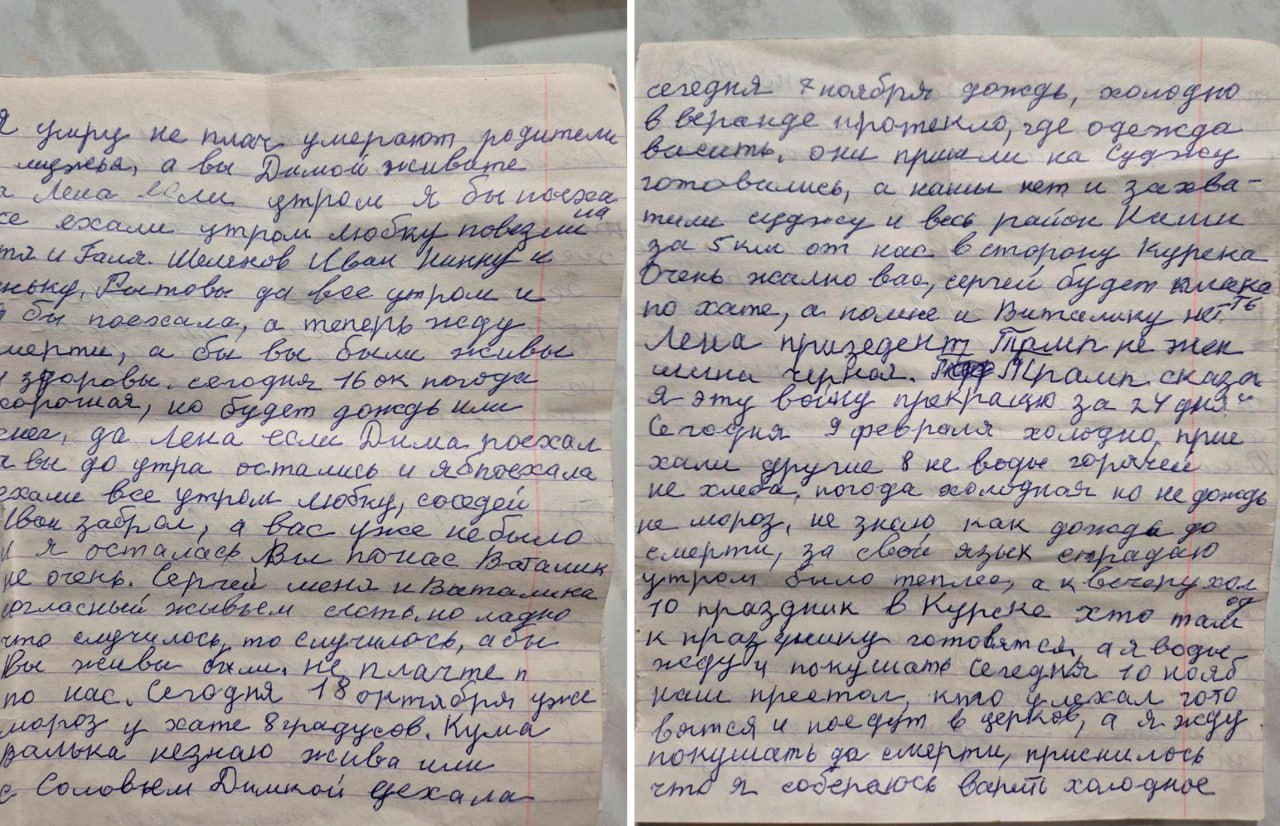 я умру не плач умерают родители
а вы Димой живате
Лена если утром я бы поеха
ла
ехали утром любку повезли
и Галя. Шеленов Иван Нинку и
Ростовы да все утром и
бы поехала, а теперь жду
мерти, а бы вы были живы
здоровы. сегодня 16 ок погода
хорошая, но будет дождь или
снег, да Лена если Дима поехал
а вы до утра остались и я б поехала
ехали все утром любку, соседей
Иван забрал, а вас уже небыло
и я осталась Вы по нас Виталик
не очень. Сергей меня и Виталика
огласный живьем сесть, но ладно
что случилось, то случилось, абы
Вы живы были. не плачте п
по нас. Сегодня 18 октября уже
мороз у хате 8 градусов. Кума
Валька незнаю жива или
с Соловьем Димкой уехала
сегодня 7 ноября дождь, холодно
в веранде протекло, где одежда
висить. они пришли на Суджу
готовились, а нашы нет и захва-
тили суджу и весь район Наши
за 5 км от нас в сторону Курска
Очень жално вас, сергей будет плака
ть
по хате, а по мне и Виталику нет.
Лена призедент Трамп не жен
шина черная. Трамп сказа
Я эту войну прекращю за 24 дня"
Сегодня 9 февраля холодно, прие
хали другие 8 не воды горячей
не хлеба, погода холодная но не дождь
не мороз, не знаю как дождь до
смерти, за свой язык страдаю
утром было теплее, а к вечеру хол
од
10 праздник в Курске хто там
к празднику готовятся, а я воды
жду и покушать Сегодня 10 нояб
наш престол, кто уехал гото
вятся и поедут в церков, а я жду
покушать да смерти, приснилось
что я собераюсь варить холодное